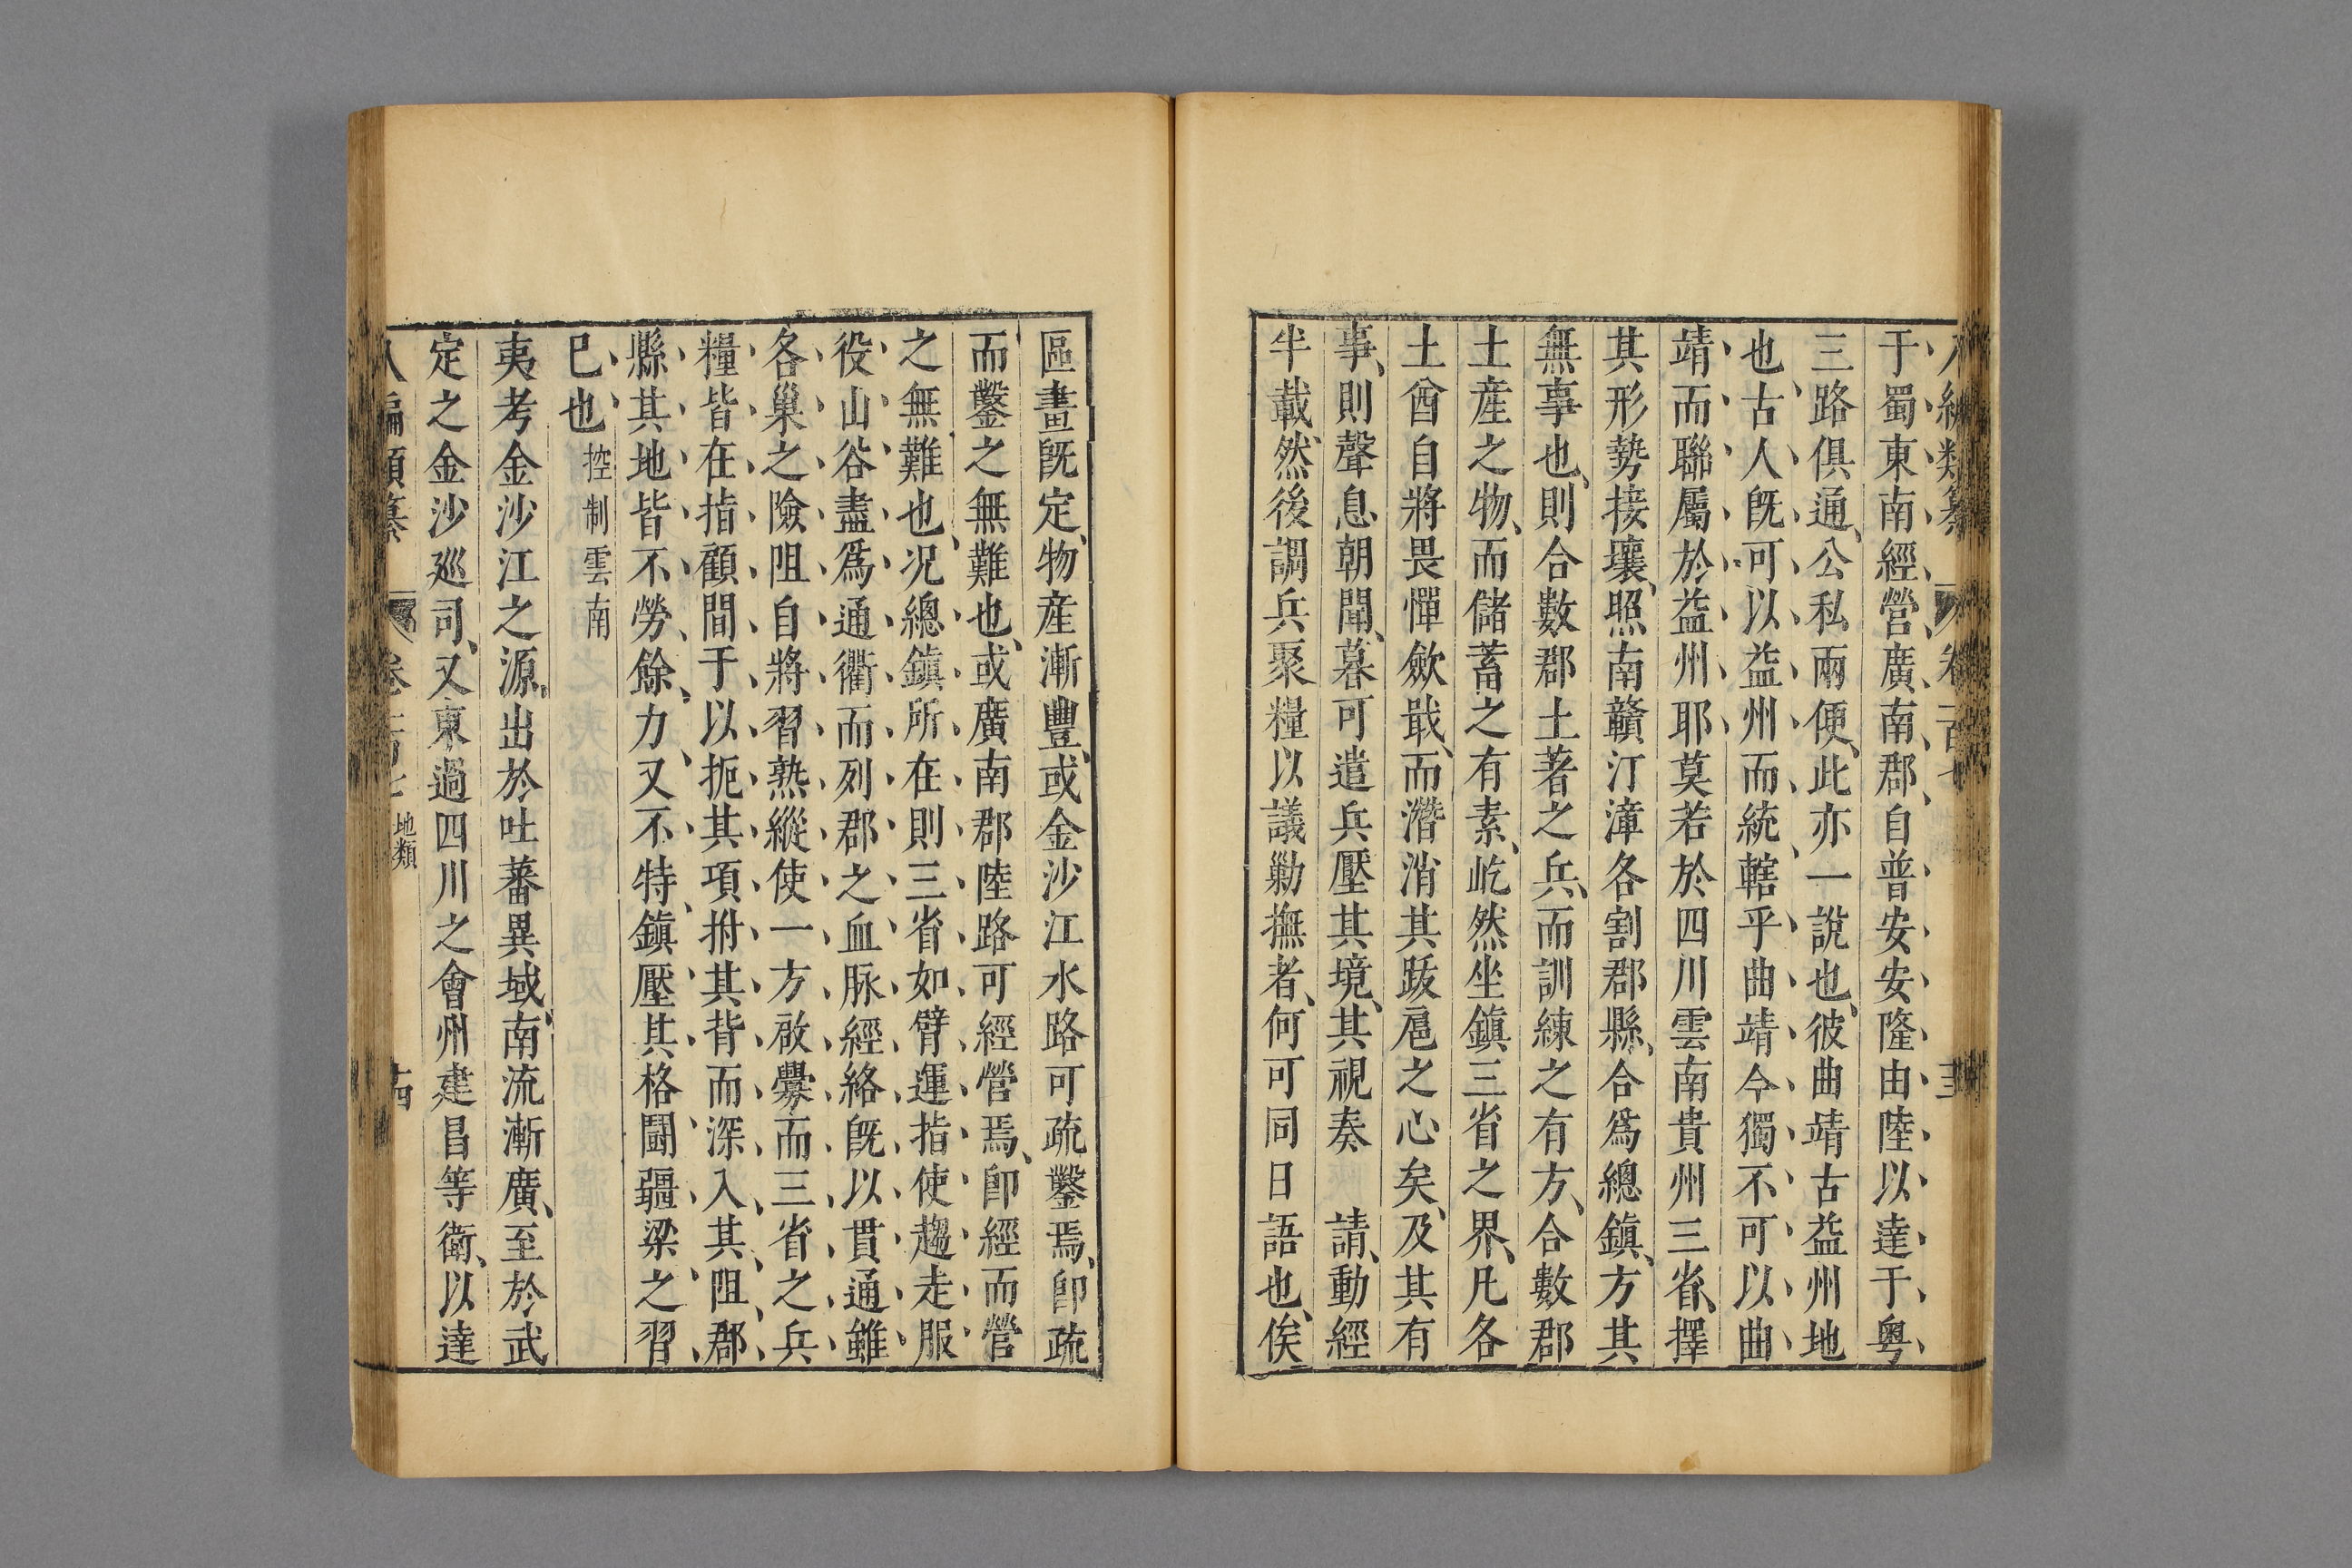 八編類纂 卷一百七 十三
于蜀東南經營廣南郡自普安安隆由陸以達于粵
三路俱通公私兩便此亦一說也彼曲靖古益州地
也古人旣可以益州而統轄乎曲靖今獨不可以曲
靖而聯屬於益州耶莫若於四川雲南貴州三省擇
其形勢接壤照南贛汀漳各割郡縣合爲總鎮方其
無事也則合數郡土著之兵而訓練之有方合數郡
土産之物而儲蓄之有素屹然坐鎮三省之界凡各
土酋自將畏憚斂戢而潛消其跋扈之心矣及其有
事則聲息朝聞暮可遣兵壓其境其視奏 請動經
半載然後調兵聚糧以議勦撫者何可同日語也俟
區畫旣定物産漸豐或金沙江水路可疏鑿焉卽疏
而鑿之無難也或廣南郡陸路可經營焉卽經而營
之無難也况總鎮所在則三省如臂運指使趨走服
役山谷盡爲通衢而列郡之血脉經絡旣以貫通雖
各巢之險阻自將習熟縱使一方啟釁而三省之兵
糧皆在指顧間于以扼其項拊其背而深入其阻郡
縣其地皆不勞餘力又不特鎮壓其格鬪疆梁之習
巳也 控制雲南
夷考金沙江之源出於吐蕃異域南流漸廣至於武
定之金沙巡司又東過四川之會州建昌等衛以達
八編類纂 卷一百七 地類 十四